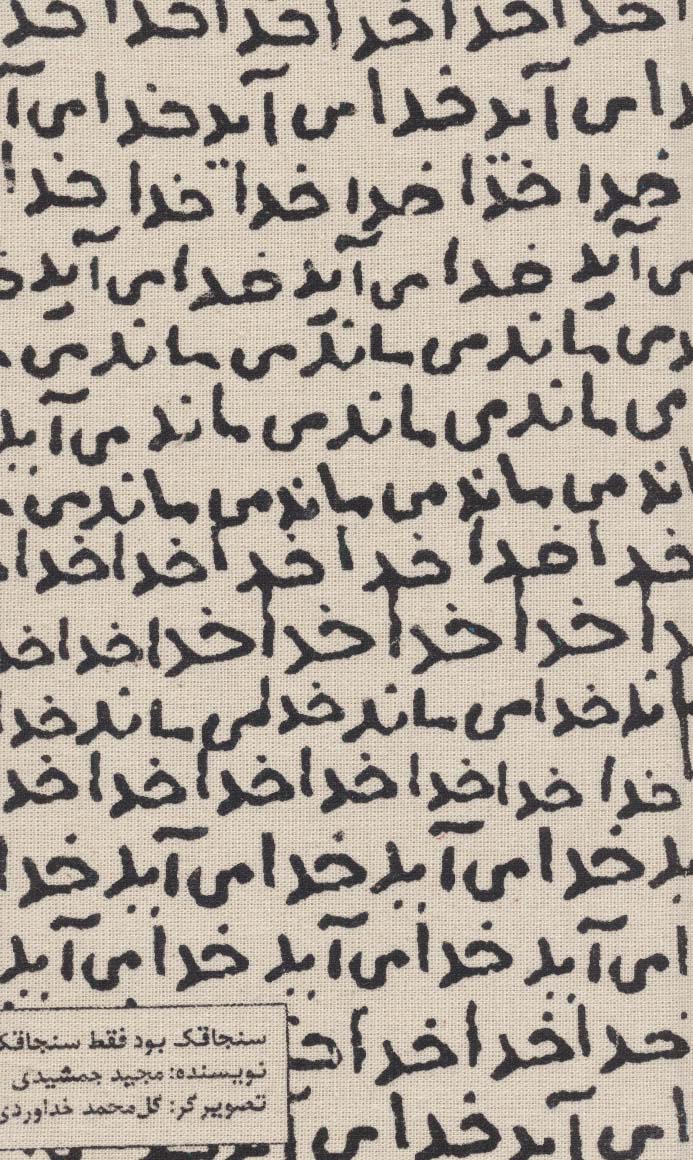 ا خدا خدا خدا خدا خدا خد
ا می آید خدا می آید خدا می آ
خدا خدا خدا خدا خدا خدا
می آید خدا می آید خدا می آید خ
د می ماند می ماند می ماند می م
می ماند می ماند می ماند می آید
اند می ماند می ماند می ماند می م
خدا خدا خدا خدا خدا خدا
ا خدا خدا خدا خدا خدا خد
ماند خدا می ماند خدا می ماند خدا
خدا خدا خدا خدا خدا خدا خد
ید خدا می آید خدا می آید خدا
ا می آید خدا می آید خدا می آید
خدا خدا خدا خد
ا می آید خدا می
سنجاقک بود فقط سنجاقک
نویسنده: مجید جمشیدی
تصویرگر: گل‌محمد خداوردی